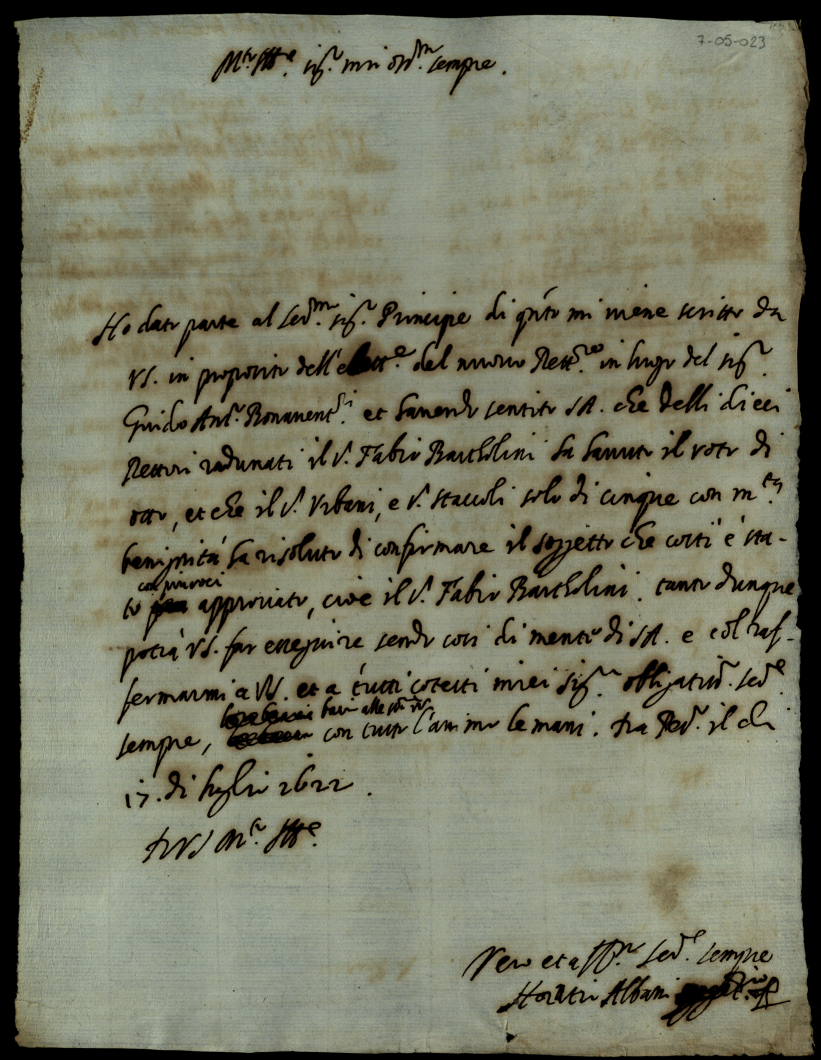 7-05-023
sig.r mio oss.mo sempre.
Ho dato parte al Ser.mo sig.r Principe di q.to mi viene scritto da
VS. in proposito dell'elett.e del nuovo Rett.re in luogo del sig.r
Guido Ant.o Bonavent.i et havendo sentito SA. che delli dieci
Rettori radunati il S. Fabio Bartholini ha havuto il voto di
otto, et che il S. Urbani, e S. Staccoli solo di cinque con m.ta
benignità ha risoluto di confirmare il soggetto che costì è sta-
con più voci
to approvato, cioè il S. Fabio Bartholini. tanto dunque
potrà VS. far esseguire sendo così di mente di SA. e col raf-
fermarmi a VS. et a tutti cotesti miei sig.ri obligatiss.o ser.e
sempre, bacio alle con tutto l'animo le mani. il dì
17. di luglio 1622.
Di VS M.to Ill.e
Vero et aff.mo ser.e sempre
Horatio Albani